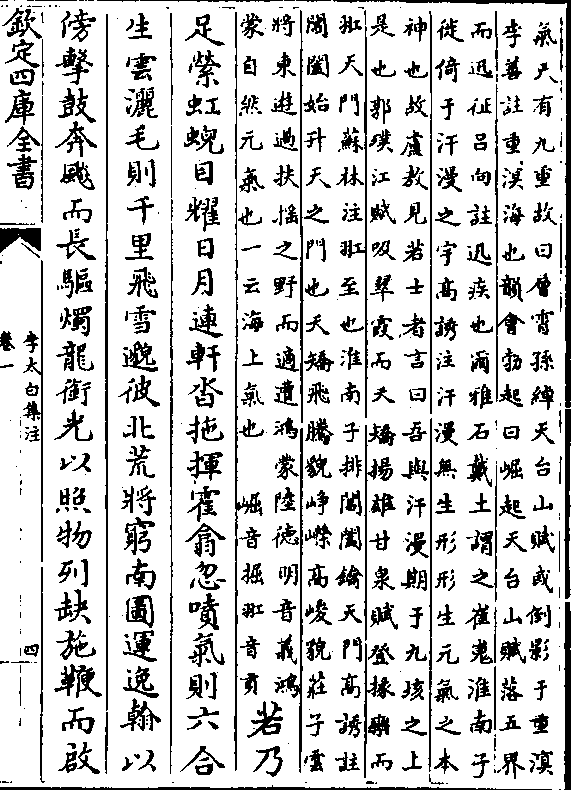 氣凡有九重故曰層霄孫綽天台山賦或倒影于重溟
李善註重溟海也韻會勃起曰崛起天台山賦落五界
而迅征呂向註迅疾也爾雅石戴土謂之崔嵬淮南子
徙倚于汗漫之宇高誘注汗漫無生形形生元氣之本
神也故盧敖見若士者言曰吾與汗漫期于九垓之上
是也郭璞江賦吸翠霞而夭矯揚雄甘泉賦登椽欒而
羾天門蘇林注羾至也淮南子排閶闔鑰天門高誘註
閶闔始升天之門也夭矯飛騰貌崢嶸高峻貌莊子雲
將東遊過扶搖之野而適遭鴻蒙陸德明音義鴻
蒙自然元氣也一云海上氣也 崛音掘羾音貢
若乃
足縈虹蜺目耀日月連軒沓拖揮霍翕忽噴氣則六合
生雲灑毛則千里飛雪邈彼北荒將窮南圖運逸翰以
傍擊鼓奔飈而長驅燭龍銜光以照物列缺施鞭而啟
欽定四庫全書
李太白集注
卷一
四